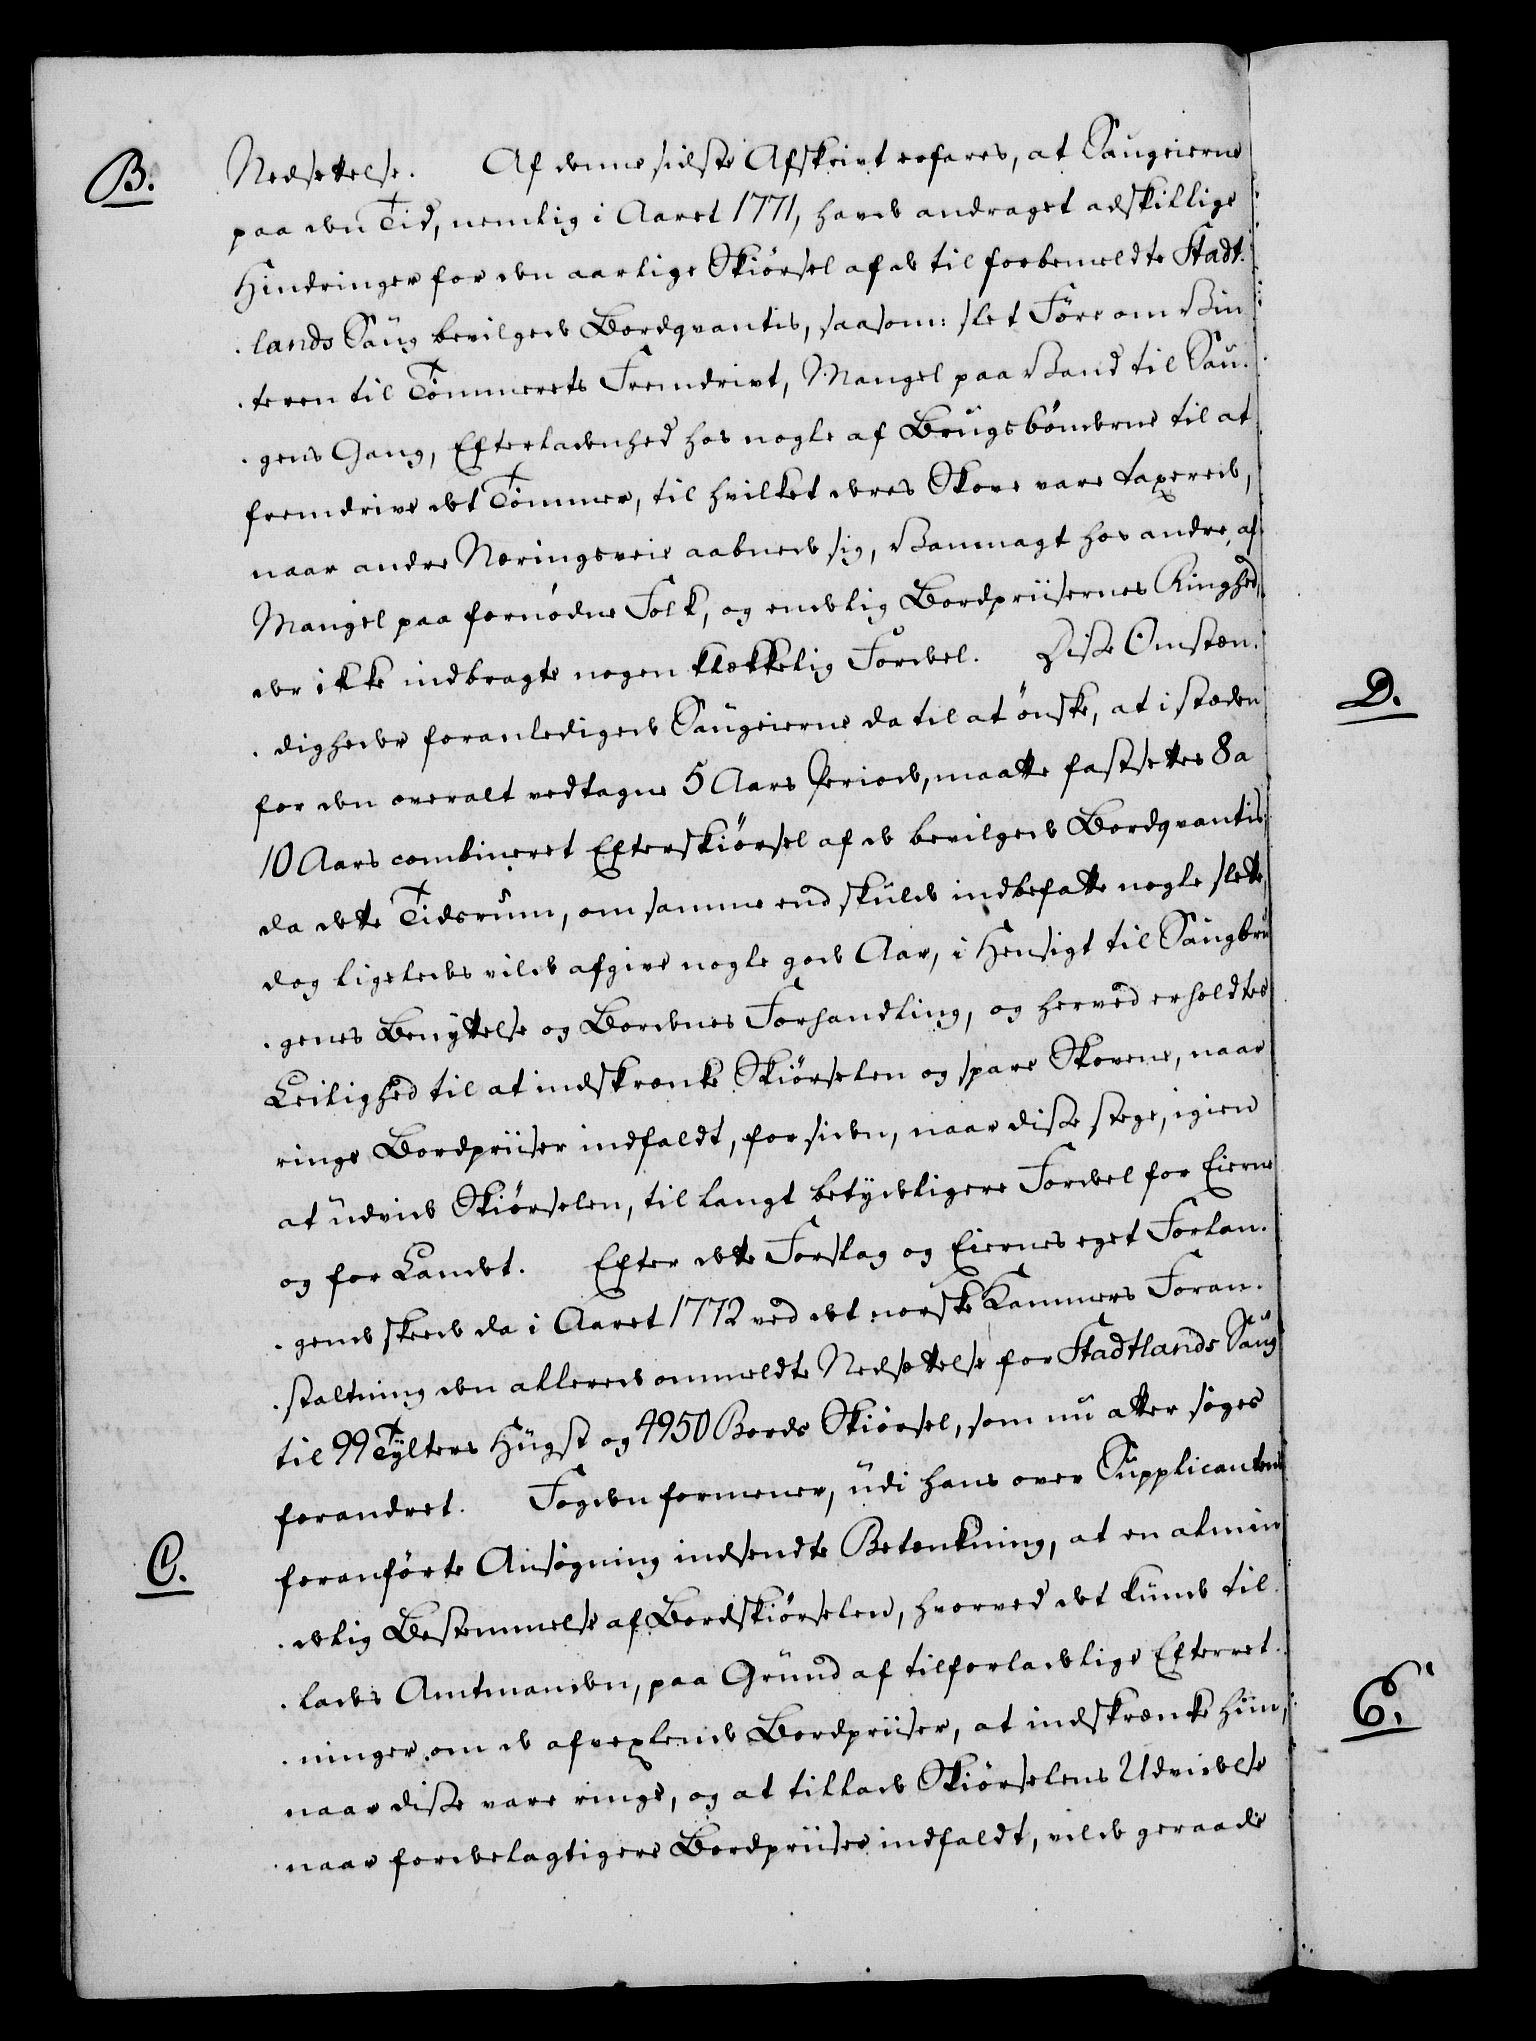 B.
Nedsettelse. Af denne sidste Afskrivt erfares, at Saugeierne
paa den Tid, nemlig i Aaret 1771, havde andraget adskillige
Hindringer for den aarlige Skiörsel af de til forbemeldte Stadt-
lands Saug bevilgede Bordqvantis, saasom: slet Före om Vin
teren til Tömmerets Fremdrivt, Mangel paa Vand til Sau-
gens Gang, Efterladenhed hos nogle af Brugsbönderne til at
fremdrive det Tömmer, til hvilket deres Skove vare taxerede,
naar andre Næringsveie aabnede sig, Vanmagt hos andre, af
Mangel paa fornödne Folk, og endelig Bordpriisernes Ringhed,
der ikke indbragte nogen klækkelig Fordeel. Disse Omstæn-
digheder foranledigede Saugeierne da til at önske, at i stæden
for den overalt vedtagne 5 Aars Periode, maatte fastsettes 8 a
10 Aars combineret Efterskiörsel af de bevilgede Bordqvantis,
da dette Tidsrum, om samme end skulde indbefatte nogle slette,
dog ligeledes vilde afgive nogle gode Aar, i Hensigt til Saugbru
genes Benyttelse og Bordenes Forhandling, og herved erholdtes
Leilighed til at indskrænke Skiörselen og spare Skovene, naar
ringe Bordpriiser indfaldt, for siden, naar disse stege, igien
at udvide Skiörselen, til langt betydeligere Fordeel for Eierne
og for Landet. Efter dette Forslag og Eiernes eget Forlan-
gende skeede da i Aaret 1772 ved det norske Kammers Foran-
staltning den allerede ommeldte Nedsættelse for Stadtlands Saug
til 99 Tylters Hugst og 4950 Bords Skiörsel, som nu atter söges
forandret. Fogden formener, udi hans over Supplicantens
C.
foranförte Ansögning indsendte Betænkning, at en almin
delig Bestemmelse af Bordskiörselen, hvorved det kunde til-
lades Amtmanden, paa Grund af tilforladelige Efterret-
ninger om de afvexlende Bordpriiser, at indskrænke hiin,
naar disse vare ringe, og at tillade Skiörselens Udvidelse
naar fordeelagtigere Bordpriiser indfaldt, vilde geraade
D.